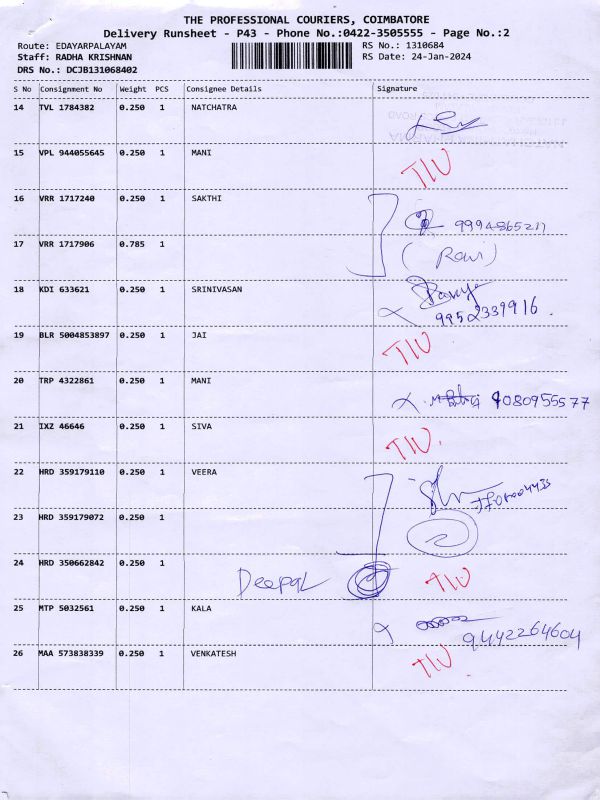 THE PROFESSIONAL COURIERS, COIMBATORE
Delivery Runsheet - P43 - Phone No.:0422-3505555 - Page No.:2
Route: EDAYARPALAYAM RS No.: 1310684
Staff: RADHA KRISHNAN RS Date: 24-Jan-2024
DRS No.: DCJB131068402
S No Consignment No Weight PCS Consignee Details Signature
14 TVL 1784382 0.250 1 NATCHATRA
15 VPL 944055645 0.250 1 MANI
16 VRR 1717240 0.250 1 SAKTHI
(Ravi)
17 VRR 1717906 0.785 1
18 KDI 633621 0.250 1 SRINIVASAN
9952339916
19 BLR 5004853897 0.250 1 JAI
20 TRP 4322861 0.250 1 MANI 9080955577
21 IXZ 46646 0.250 1 SIVA
22 HRD 359179110 0.250 1 VEERA
23 HRD 359179072 0.250 1
24 HRD 350662842 0.250 1 Deepak
25 MTP 5032561 0.250 1 KALA
9442264604
26 MAA 573838339 0.250 1 VENKATESH